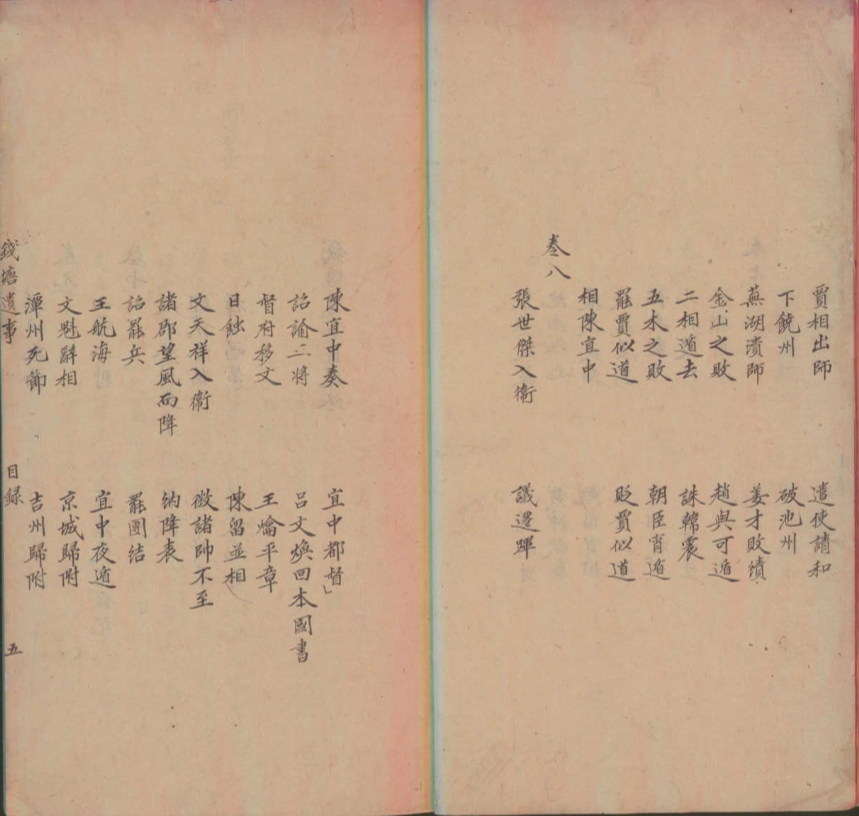 賈相出師 遣使請和
下饒州 破池州
蕪湖潰師 姜才敗績
金山之敗 趙與可遁
二相遁去 誅韓震
五木之敗 朝臣宵遁
罷賈似道 貶賈似道
相陳宜中
卷八
張世傑入衛 議遷蹕
陳宜中奏 宜中都督
詔諭三將 呂文煥回本國書
督府移文 王爚平章
日蝕 陳留並相
文天祥入衛 徴諸帥不至
諸郡望風而降 納降表
詔罷兵 罷團結
王航海 宜中夜遁
文魁辭相 京城歸附
潭州死節 吉州歸附
錢塘遺事 目録 五